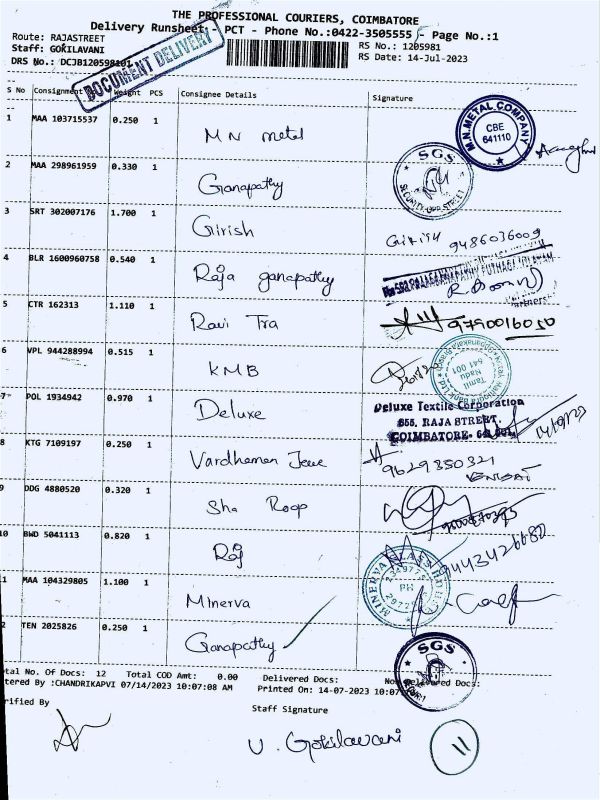 THE PROFESSIONAL COURIERS, COIMBATORE
Delivery Runsheet - PCT - Phone No.:0422-3505555 - Page No.:1
Route: RAJASTREET
RS No.: 1205981
Staff: GOKILAVANI
RS Date: 14-Jul-2023
DRS No.: DCJB120598101
DOCUMENT DELIVERY
S No Consignment Weight PCS Consignee Details Signature
1 MAA 103715537 0.250 1 MN metal
M.N.METAL COMPANY CBE 641110
2 MAA 298961959 0.330 1 Ganapathy
SGS
3 SRT 302007176 1.700 1 Girish Girish 9486036009
4 BLR 1600960758 0.540 1 Raja ganapathy
5 CTR 162313 1.110 1 Ravi Tra 9790016050
6 VPL 944288994 0.515 1 KMB
Tamil Nadu 641 001
7 POL 1934942 0.970 1 Deluxe
Deluxe Textile Corporation
855, RAJA STREET,
COIMBATORE- 641 001.
8 KTG 7109197 0.250 1 Vardhaman Jewe 9629850321
9 DDG 4880520 0.320 1 Sha Roop
10 BWD 5041113 0.820 1 Raj 9443426680
1 MAA 104329805 1.100 1 Minerva
MINERVA PH
2 TEN 2025826 0.250 1 Ganapathy
SGS
otal No. Of Docs: 12 Total COD Amt: 0.00 Delivered Docs: Docs:
tered By :CHANDRIKAPVI 07/14/2023 10:07:08 AM Printed On: 14-07-2023 10:07
rified By
Staff Signature
U. Gokilavani
11